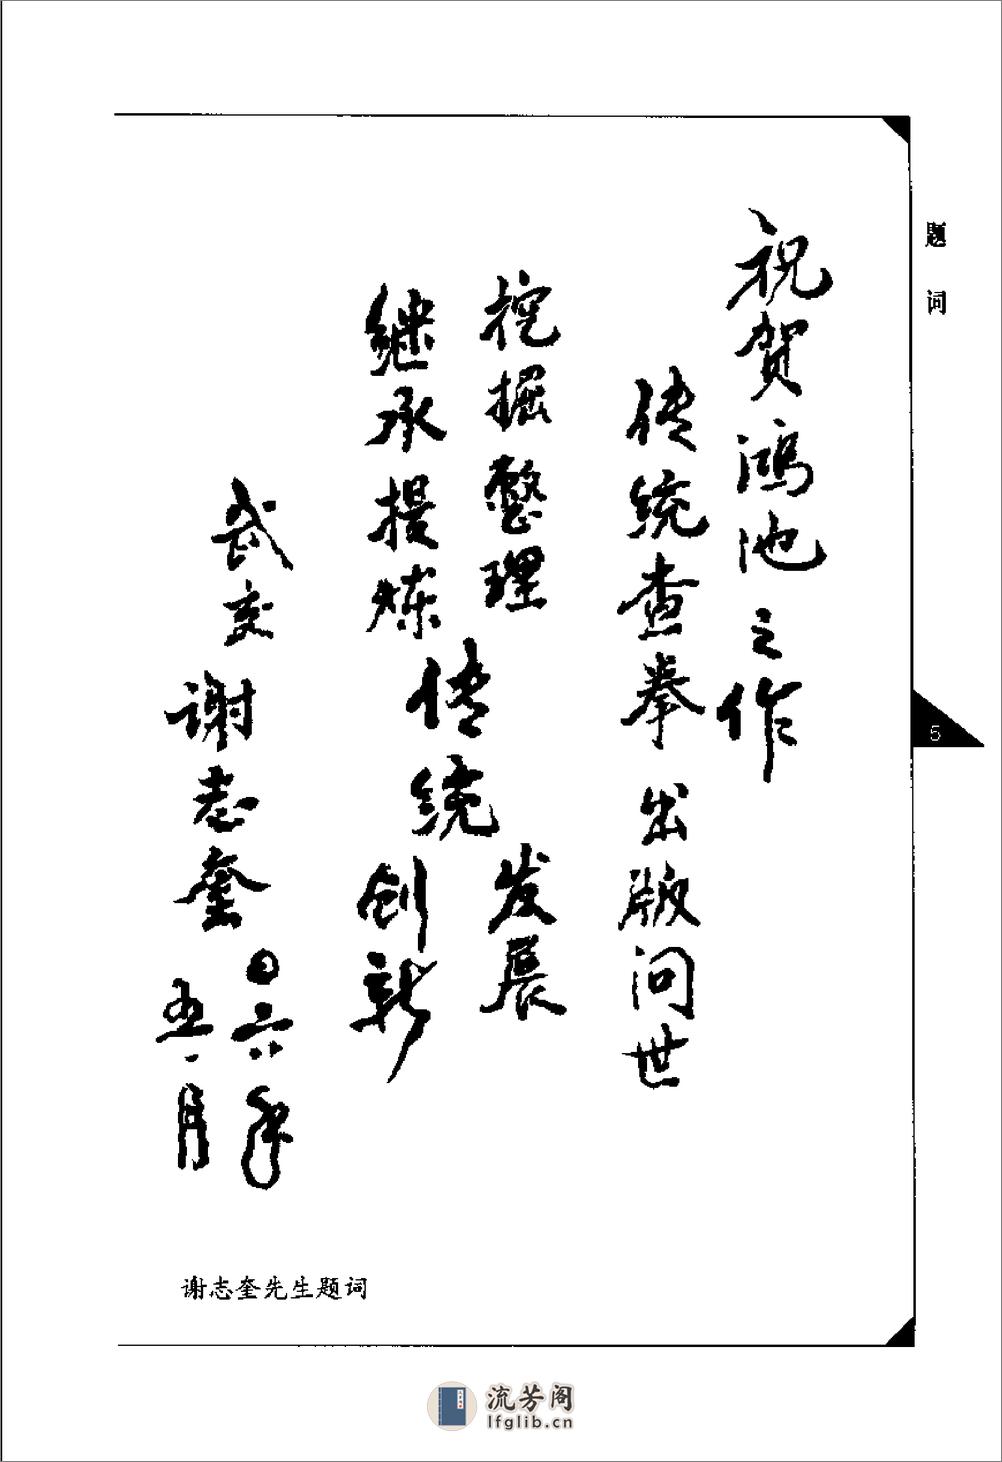 题词
5
祝贺鸿池之作
传统查拳出版问世
挖掘整理
继承提炼
传统
发展
创新
武友谢志奎
〇六年
五月
谢志奎先生题词
流芳阁
lfglib.cn